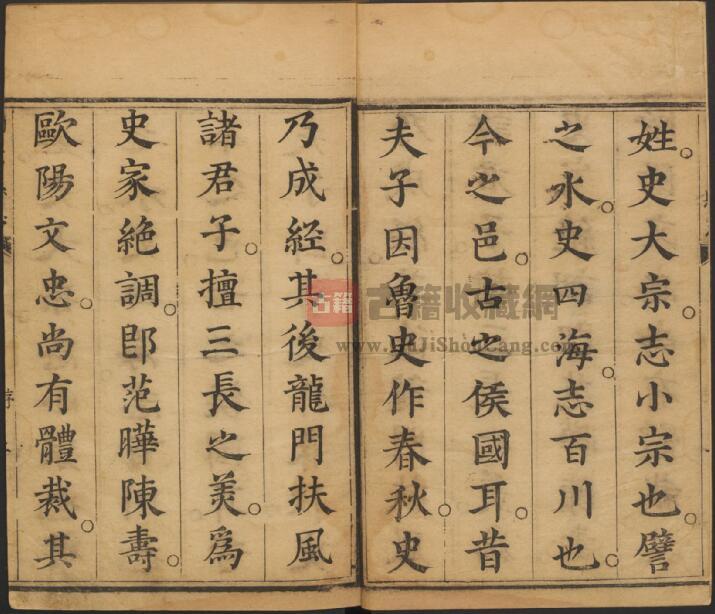 姓。史大宗。志小宗也。譬
之水。史四海。志百川也。
今之邑。古之侯國耳。昔
夫子因魯史作春秋。史
乃成經。其後龍門扶風
諸君子。擅三長之美。為
史家絕調。卽范曄陳壽。
歐陽文忠。尚有體裁。其
序
古籍 古籍收藏網
www.GuJiShouCang.com